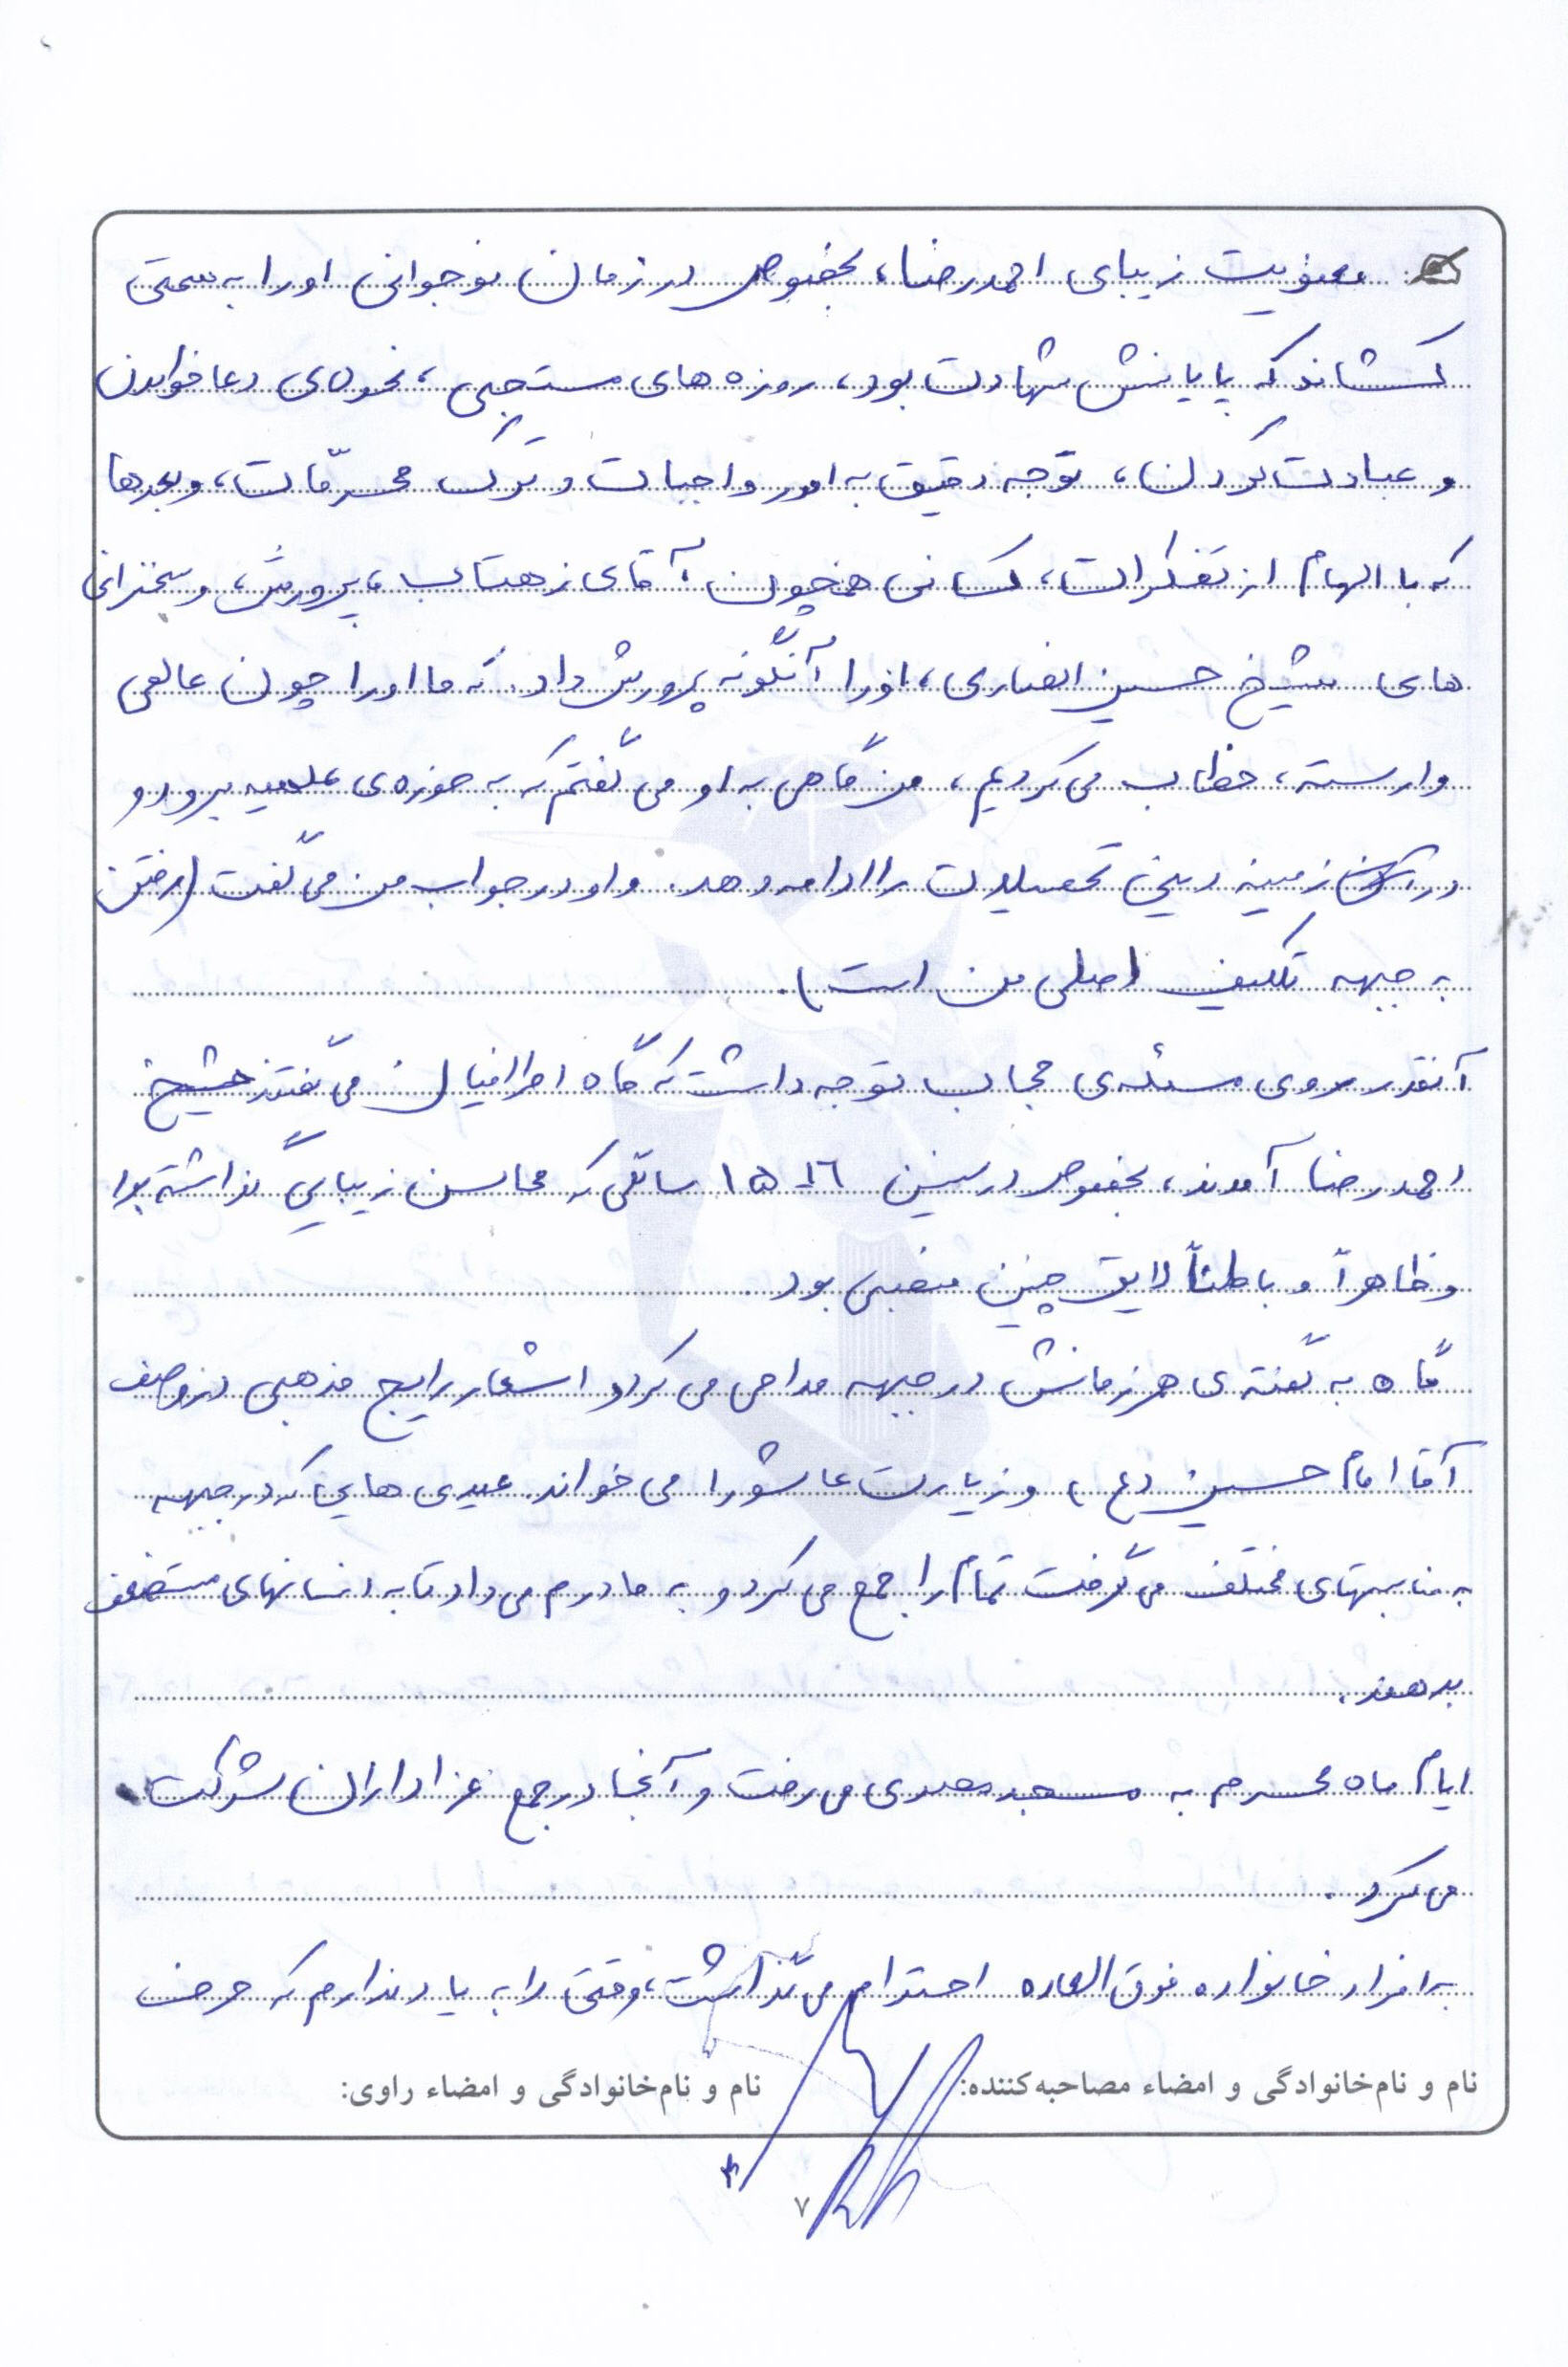 معنویت زیبای احمدرضا، بخصوص در زمان نوجوانی او را به سمتی
کشاند که پایانش شهادت بود، روزه های مستحبی، نحوه‌ی دعا خواندن
و عبادت کردن، توجه دقیق به امور واجبات و ترک محرّمات، و بعدها
که با الهام از تفکرات، کسانی همچون آقای زهتاب، پرورش، و سخنرانی
های شیخ حسین انصاری، او را آنگونه پرورش داد. که ما او را چون عالمی
وارسته، خطاب می کردیم، من گاهی به او می گفتم که به حوزه‌ی علمیه برود و
در زمینه دینی تحصیلات را ادامه دهد. و او در جواب من می گفت (رفتن
به جبهه تکلیف اصلی من است).
آنقدر روی مسئله‌ی حجاب توجه داشت که گاه اطرافیان می گفتند شیخ
احمدرضا آمدند، بخصوص در سنین ۱۶ـ۱۵ سالگی که محاسن زیبایی گذاشته بود
و ظاهراً و باطناً لایق چنین منصبی بود.
گاه به گفته‌ی همرزمانش در جبهه مداحی می کرد و اشعار رایج مذهبی در وصف
آقا امام حسین (ع) و زیارت عاشورا می خواند. عیدی هایی که در جبهه
به مناسبتهای مختلف می گرفت تمام را جمع می کرد و به مادرم می داد تا به انسانهای مستضعف
بدهند.
ایام ماه محرم به مسجد مهدی می رفت و آنجا در جمع عزاداران شرکت
می کرد.
به افراد خانواده فوق العاده احترام می گذاشت، وقتی را به یاد ندارم که حرف
نام و نام‌خانوادگی و امضاء مصاحبه‌کننده: نام و نام‌خانوادگی و امضاء راوی:
۷